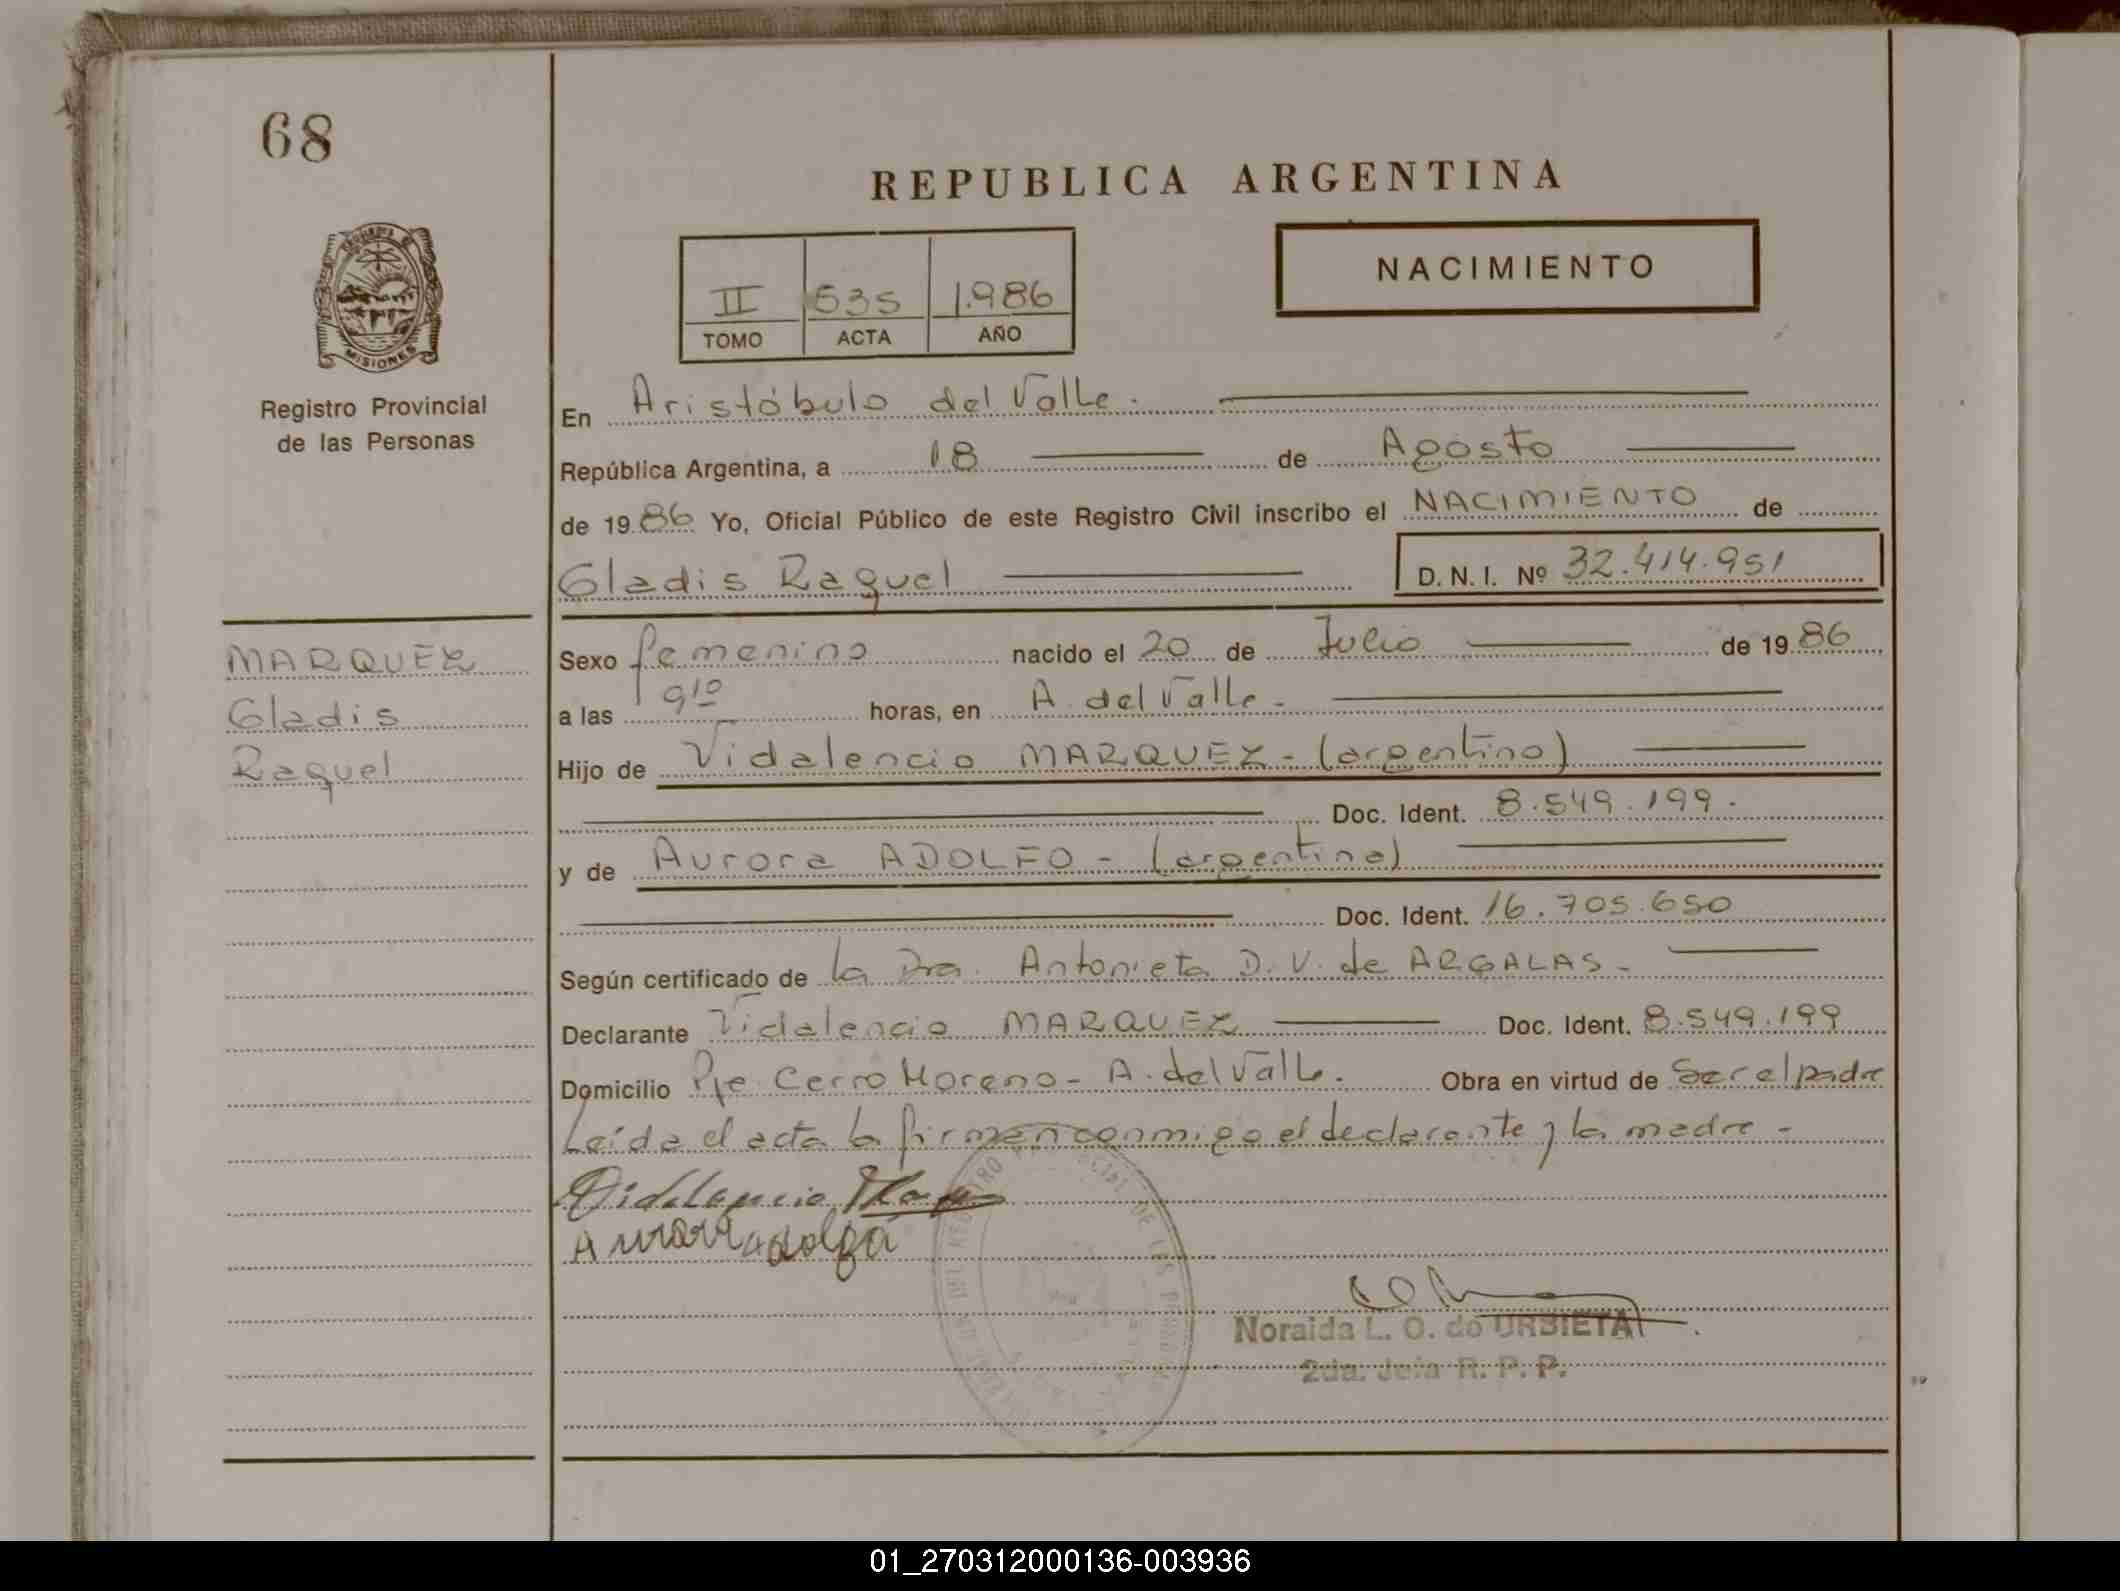 68
REPUBLICA ARGENTINA
NACIMIENTO
II 535 1.986
TOMO ACTA AÑO
MISIONES
Registro Provincial
de las Personas
En Aristóbulo del Valle.
República Argentina, a 18 de Agosto
de 1986 Yo, Oficial Público de este Registro Civil inscribo el NACIMIENTO de
Gladis Raquel D.N.I. Nº 32.414.951
MARQUEZ
Gladis
Raquel
Sexo femenino nacido el 20 de Julio de 1986
a las 9¹⁰ horas, en A. del Valle -
Hijo de Vidalencio MARQUEZ - (argentino)
Doc. Ident. 8.549.199.
y de Aurora ADOLFO - (argentina)
Doc. Ident. 16.705.650
Según certificado de la Dra. Antonieta D. V. de ARGALAS -
Declarante Vidalencio MARQUEZ Doc. Ident. 8.549.199
Domicilio Pje Cerro Moreno - A. del Valle. Obra en virtud de Ser el padre
Leída el acta la firman conmigo el declarante y la madre -
Vidalencio
Noraida L. O. de URBIETA
2da. Jefa R. P. P.
01_270312000136-003936